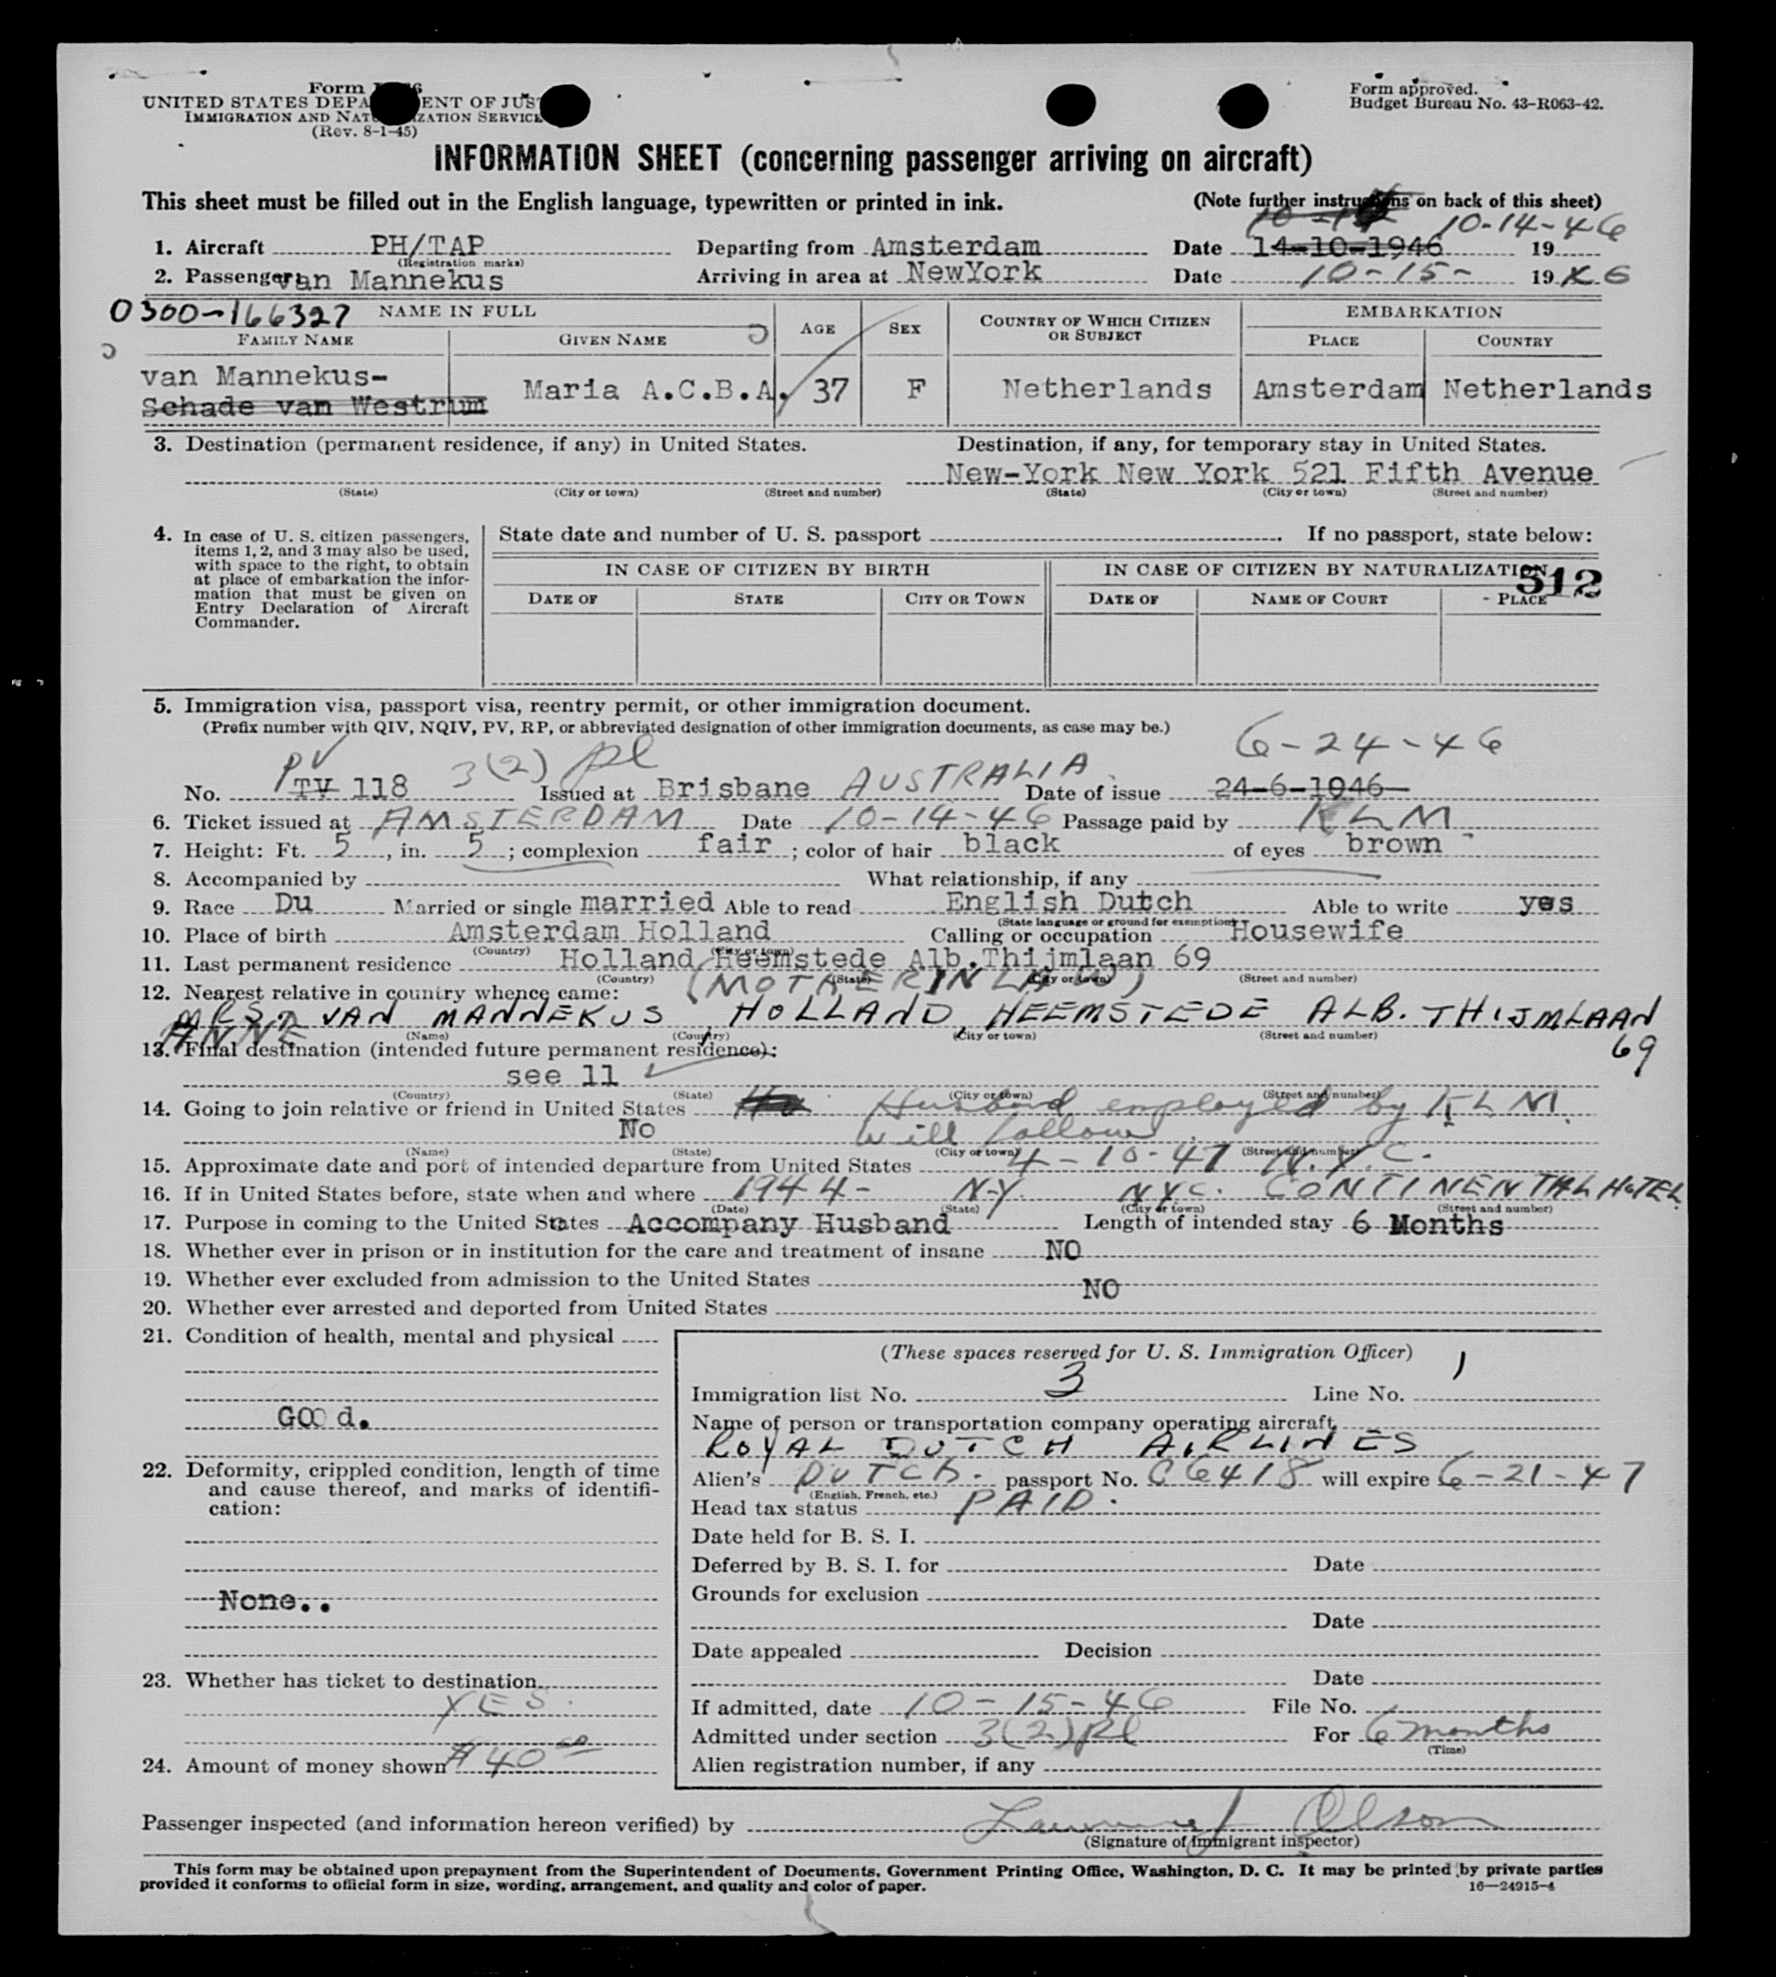 Form
UNITED STATES DEPA ENT OF JUS
IMMIGRATION AND NAT ZATION SERVICE
(Rev. 8-1-45)
Form approved.
Budget Bureau No. 43-R063-42.
INFORMATION SHEET (concerning passenger arriving on aircraft)
This sheet must be filled out in the English language, typewritten or printed in ink. (Note further instructions on back of this sheet)
10-14-46
1. Aircraft PH/TAP Departing from Amsterdam Date 14-10-1946 19
(Registration marks)
2. Passenger van Mannekus Arriving in area at NewYork Date 10-15- 1946
0300-166327 NAME IN FULL AGE SEX COUNTRY OF WHICH CITIZEN OR SUBJECT EMBARKATION
FAMILY NAME GIVEN NAME PLACE COUNTRY
van Mannekus-
Schade van Westrum Maria A.C.B.A. 37 F Netherlands Amsterdam Netherlands
3. Destination (permanent residence, if any) in United States. Destination, if any, for temporary stay in United States.
New-York New York 521 Fifth Avenue
(State) (City or town) (Street and number) (State) (City or town) (Street and number)
4. In case of U. S. citizen passengers, items 1, 2, and 3 may also be used, with space to the right, to obtain at place of embarkation the information that must be given on Entry Declaration of Aircraft Commander.
State date and number of U. S. passport . If no passport, state below:
IN CASE OF CITIZEN BY BIRTH IN CASE OF CITIZEN BY NATURALIZATION
512
DATE OF STATE CITY OR TOWN DATE OF NAME OF COURT PLACE
5. Immigration visa, passport visa, reentry permit, or other immigration document.
(Prefix number with QIV, NQIV, PV, RP, or abbreviated designation of other immigration documents, as case may be.)
PV 3(2) pl 6-24-46
No. TV 118 Issued at Brisbane AUSTRALIA Date of issue 24-6-1946
6. Ticket issued at AMSTERDAM Date 10-14-46 Passage paid by KLM.
7. Height: Ft. 5, in. 5; complexion fair; color of hair black of eyes brown
8. Accompanied by What relationship, if any
9. Race Du Married or single married Able to read English Dutch Able to write yes
(State language or ground for exemption)
10. Place of birth Amsterdam Holland Calling or occupation Housewife
(Country) (City or town)
11. Last permanent residence Holland Heemstede Alb.Thijmlaan 69
(Country) (State) (City or town) (Street and number)
12. Nearest relative in country whence came: (MOTHERINLAW)
MRS. VAN MANNEKUS, HOLLAND, HEEMSTEDE ALB. THIJMLAAN 69
ANNE (Name) (Country) (City or town) (Street and number)
13. Final destination (intended future permanent residence):
see 11
(Country) (State) (City or town) (Street and number)
14. Going to join relative or friend in United States Husband employed by KLM.
No will follow.
(Name) (State) (City or town) (Street and number)
15. Approximate date and port of intended departure from United States 4-10-47 N.Y.C.
16. If in United States before, state when and where 1944- N-Y. NYC. CONTINENTAL HOTEL.
(Date) (State) (City or town) (Street and number)
17. Purpose in coming to the United States Accompany Husband Length of intended stay 6 Months
18. Whether ever in prison or in institution for the care and treatment of insane NO
19. Whether ever excluded from admission to the United States
NO
20. Whether ever arrested and deported from United States
21. Condition of health, mental and physical
GOOd.
22. Deformity, crippled condition, length of time and cause thereof, and marks of identification:
None..
23. Whether has ticket to destination
YES.
24. Amount of money shown $40.00
(These spaces reserved for U. S. Immigration Officer)
Immigration list No. 3 Line No. 1
Name of person or transportation company operating aircraft
ROYAL DUTCH AIRLINES
Alien's DUTCH. passport No. C6418 will expire 6-21-47
(English, French, etc.)
Head tax status PAID.
Date held for B. S. I.
Deferred by B. S. I. for Date
Grounds for exclusion
Date
Date appealed Decision
Date
If admitted, date 10-15-46 File No.
Admitted under section 3(2)pl For 6 months
(Time)
Alien registration number, if any
Passenger inspected (and information hereon verified) by Olson
(Signature of immigrant inspector)
This form may be obtained upon prepayment from the Superintendent of Documents, Government Printing Office, Washington, D. C. It may be printed by private parties
provided it conforms to official form in size, wording, arrangement, and quality and color of paper. 16—24915-4